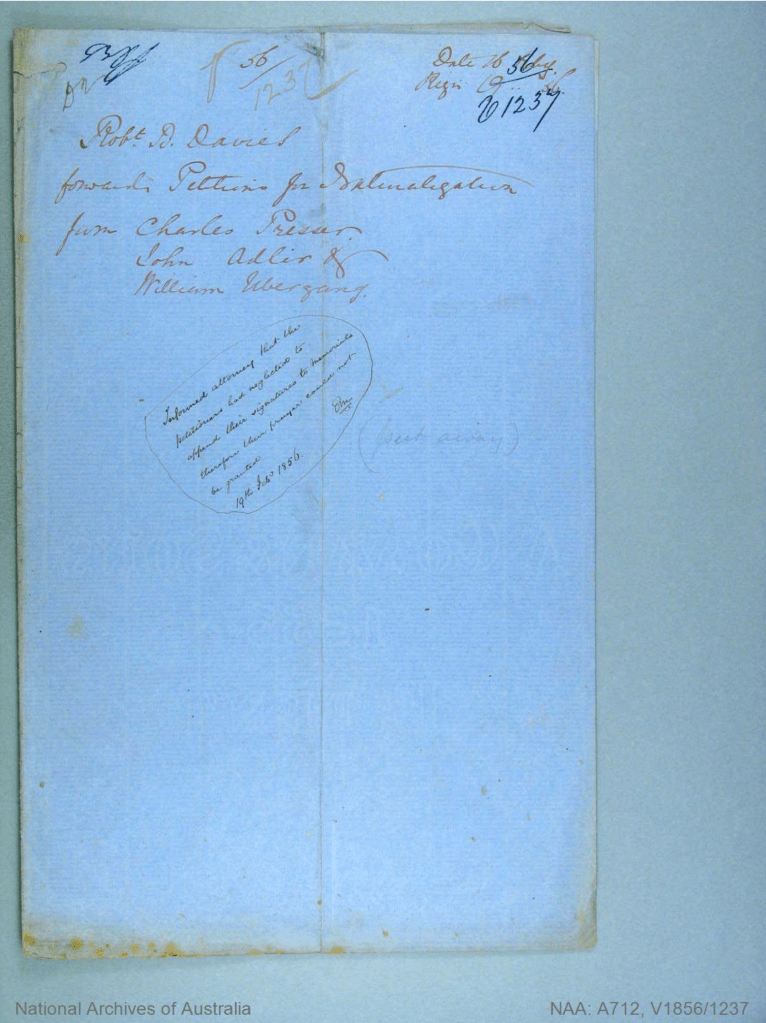 56
1237
Date 16
Regr 19
56
V1237
Robt. D. Davies
forwards Petitions for Naturalization
from Charles Presser
John Adler &
William Ubergang.
Informed attorney that the
petitioners had neglected to
append their signatures to memorials
therefore their prayer could not
be granted
19th Feby 1856.
(put away)
National Archives of Australia
NAA: A712, V1856/1237